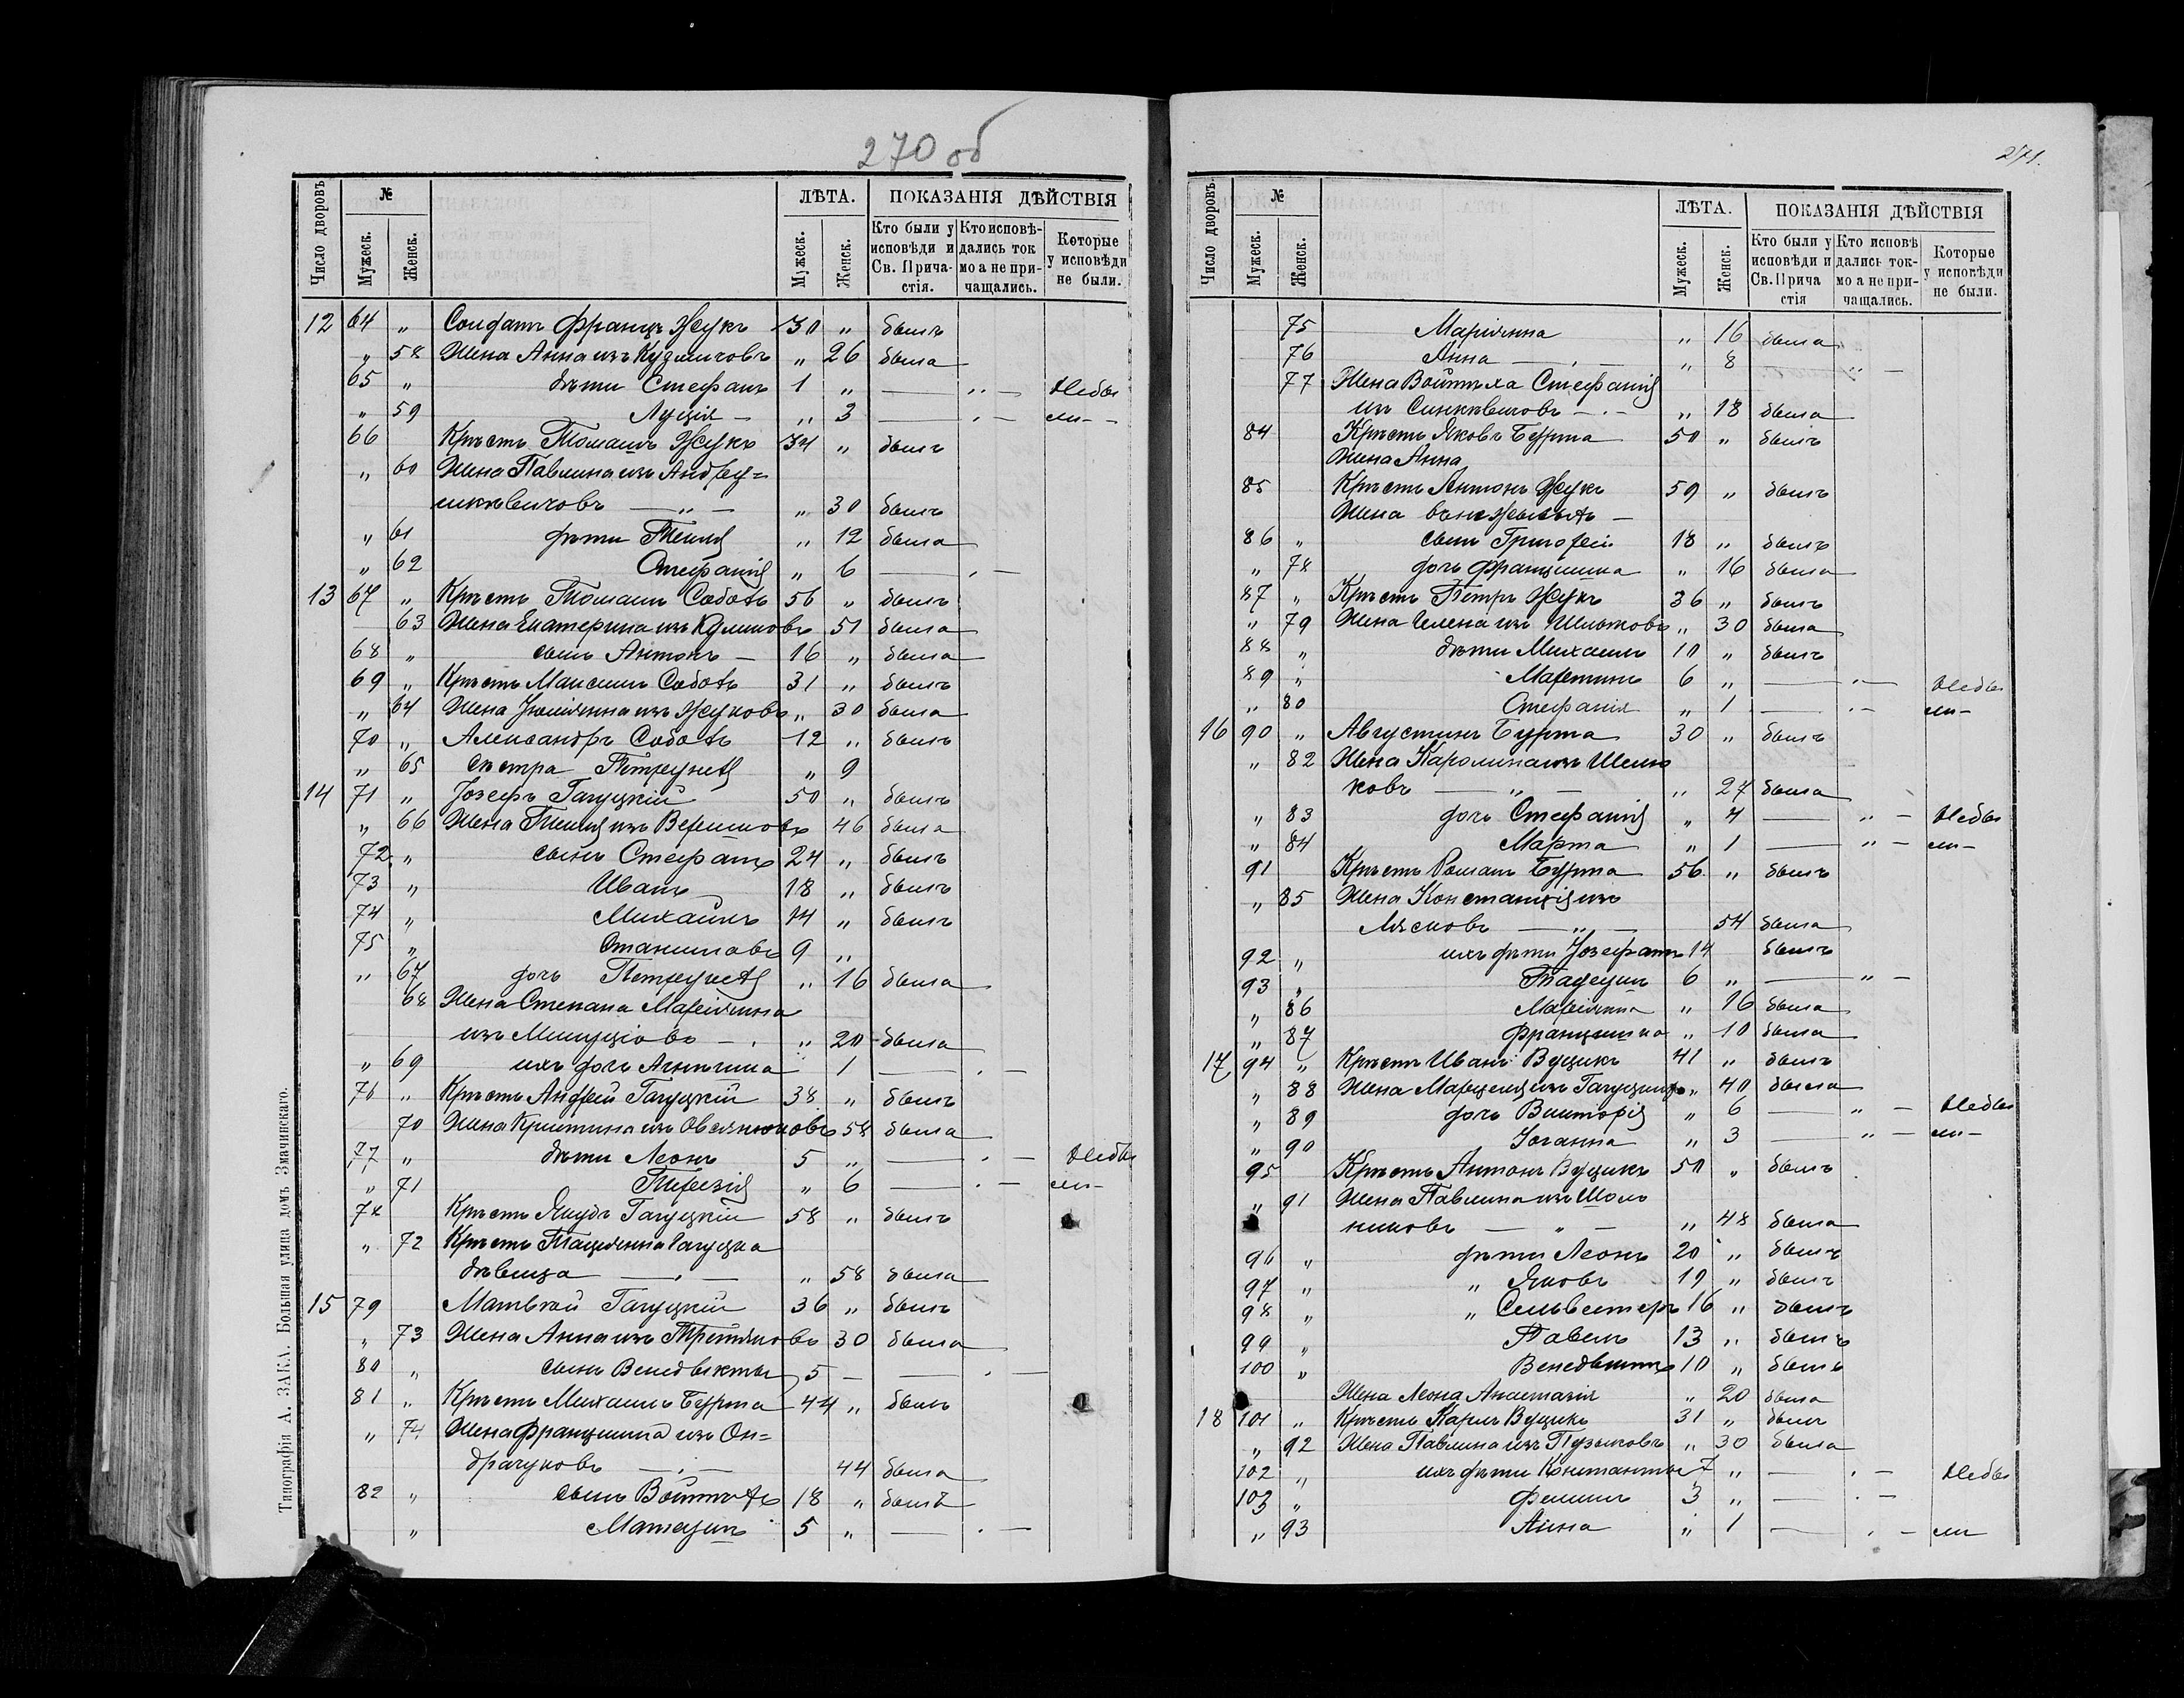 270 об
Число дворовъ
№
Мужеск.
Женск.
ЛѢТА.
Мужеск.
Женск.
ПОКАЗАНІЯ ДѢЙСТВІЯ
Кто были у исповѣди и Св. Прича-стія.
Кто исповѣ-дались ток мо а не при-чащались.
Которые у исповѣди не были.
12 64 „ Солдатъ Францъ Жукъ 30 „ былъ
„ 58 Жена Анна изъ Кузмичовъ „ 26 была
65 „ дѣти Стефанъ 1 „ — „ — Небы
„ 59 Луція — „ 3 — „ — ли —
66 Крѣстъ Томашъ Жукъ 34 „ былъ
„ 60 Жена Павлина изъ Андру=
шкѣвичовъ — „ — „ 30 былъ
„ 61 дѣти Текля „ 12 была
„ 62 Стефанія „ 6 — „ —
13 67 „ Крѣстъ Томашъ 56 „ былъ
63 Жена Екатерина изъ 51 была
68 „ сынъ Антонъ — 16 „ была
69 „ Крѣстъ Максимъ 31 „ былъ
„ 64 Жена Юліянна изъ Жуковъ „ 30 была
70 „ Александръ 12 „ былъ
„ 65 сѣстра „ 9
14 71 „ Іозефъ Гагуцкій 50 „ былъ
„ 66 Жена Текля изъ 46 была
72 „ сынъ Стефанъ 24 „ былъ
73 „ Иванъ 18 „ былъ
74 „ Михаилъ 14 „ былъ
75 „ Станиславъ 9 „
„ 67 дочь „ 16 была
68 Жена Степана Маріянна
изъ — „ 20 была
„ 69 ихъ дочь 1 — „ —
76 „ Крѣстъ Андрей Гагуцкій 38 „ былъ
70 Жена Кристина изъ 58 была
77 „ дѣти Леонъ 5 „ — „ — Небы
„ 71 Терезія „ 6 — „ — ли —
78 Крѣстъ Якубъ Гагуцкій 58 „ былъ
„ 72 Крѣстъ Гагуцка
дѣвица — „ — „ 58 была
15 79 Матвѣй Гагуцкій 36 „ былъ
„ 73 Жена Анна изъ 30 была
80 „ сынъ Венедыктъ 5 — — „ —
81 „ Крѣстъ Михаилъ Бурта 44 „ былъ
„ 74 Жена Францишка изъ Он=
драчуковъ — „ — 44 была
82 „ сынъ 18 „ былъ
„ Матеушъ 5 „ — „ —
Типографія А. ЗАКА. Большая улица домъ Змачинскаго.
271.
Число дворовъ.
№
Мужеск.
Женск.
ЛѢТА.
Мужеск.
Женск.
ПОКАЗАНІЯ ДѢЙСТВІЯ
Кто были у исповѣди и Св. Прича стія
Кто исповѣ дались ток-мо а не при-чащались.
Которые у исповѣди не были.
75 Маріянна „ 16 была
76 Анна — „ — „ 8 „ —
77 Жена Стефанія
изъ Синкѣвичовъ — „ — „ 18 была
84 Крѣстъ Яковъ Бурта 50 „ былъ
Жена Анна
85 Крѣстъ Антонъ Жукъ 59 „ былъ
Жена —
86 „ сынъ Григорій 18 „ былъ
„ 78 дочь Францишка „ 16 была
87 „ Крѣстъ Петръ Жукъ 36 „ былъ
„ 79 Жена Елена изъ „ 30 была
88 „ дѣти Михаилъ 10 „ былъ
89 „ Мартинъ 6 „ — „ — Небы
„ 80 Стефанія „ 1 — „ — ли —
16 90 „ Августинъ Бурта 30 „ былъ
„ 82 Жена Каролина изъ Шелю
ковъ — „ — „ 27 была
„ 83 дочь Стефанія „ 4 — „ — Небы
„ 84 Марта „ 1 — „ — ли —
91 Крѣстъ Романъ Бурта 56 „ былъ
„ 85 Жена Констанція изъ
— „ — 54 была
92 „ ихъ дѣти Іозефатъ 14 былъ
93 „ Тадеушъ 6 „ — „ —
„ 86 Маріянна „ 16 была
„ 87 Францишка „ 10 была
17 94 „ Крѣстъ Иванъ Вуцикъ 41 „ былъ
„ 88 Жена Марцеля изъ Гагуцкихъ „ 40 была
„ 89 дочь Викторія „ 6 — „ — Небы
„ 90 Іоганна „ 3 — „ — ли —
95 Крѣстъ Антонъ Вуцикъ 50 „ былъ
„ 91 Жена Павлина изъ
никовъ — „ — „ 48 была
96 „ дѣти Леонъ 20 „ былъ
97 „ „ Яковъ 19 „ былъ
98 „ „ Сильвестеръ 16 „ былъ
99 „ Павелъ 13 „ былъ
100 „ Венедыктъ 10 „ былъ
Жена Леона Анастазія „ 20 была
18 101 „ Крѣстъ Карлъ Вуцикъ 31 „ былъ
„ 92 Жена Павлина изъ „ 30 была
102 „ ихъ дѣти Константы 7 „ — „ — Небы
103 „ 3 „ — „ —
„ 93 Анна „ 1 — „ — ли